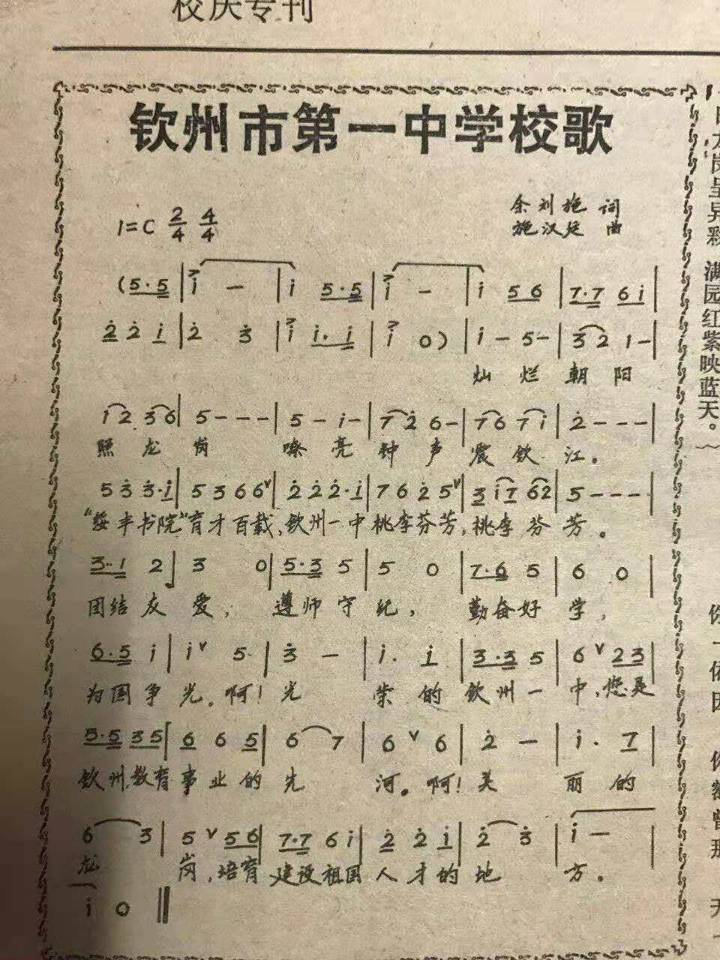 校庆专刊
钦州市第一中学校歌
1=C 2/4 4/4
余刘施 词
施汉廷 曲
(5·5 | i - | i 5·5 | i - | i 56 | 7·7 6i |
2 2 i | 2 3 | i i·i | i 0) | i - 5 - | 3 2 1 - |
灿烂朝阳
12 36 | 5 - - - | 5 - i - | 7 2 6 - | 76 7i | 2 - - - |
照龙岗 嘹亮钟声震钦江。
5 3 3·i | 5 3 6 6 | 2 2 2·i | 7 6 2 5 | 3 i7 62 | 5 - - - |
“绥丰书院”育才百载,钦州一中桃李芬芳,桃李芬芳。
3·1 2 | 3 0 | 5·3 5 | 5 0 | 7·6 5 | 6 0 |
团结友爱, 遵师守纪, 勤奋好学,
6·5 i | i 5 | 3 - | i· i | 3·3 5 | 6 23 |
为国争光。啊!光 荣的钦州一中,您是
5·5 35 | 6 6 5 | 6 7 | 6 6 | 2 - | i· 7 |
钦州教育事业的先 河。啊!美 丽的
6 3 | 5 56 | 7·7 6i | 2 2 i | 2 3 | i - |
龙 岗,培育建设祖国人才的地 方。
i 0 ‖
日
岗呈异彩
满园红紫映蓝天。
你
一
依
因
你
曾
那